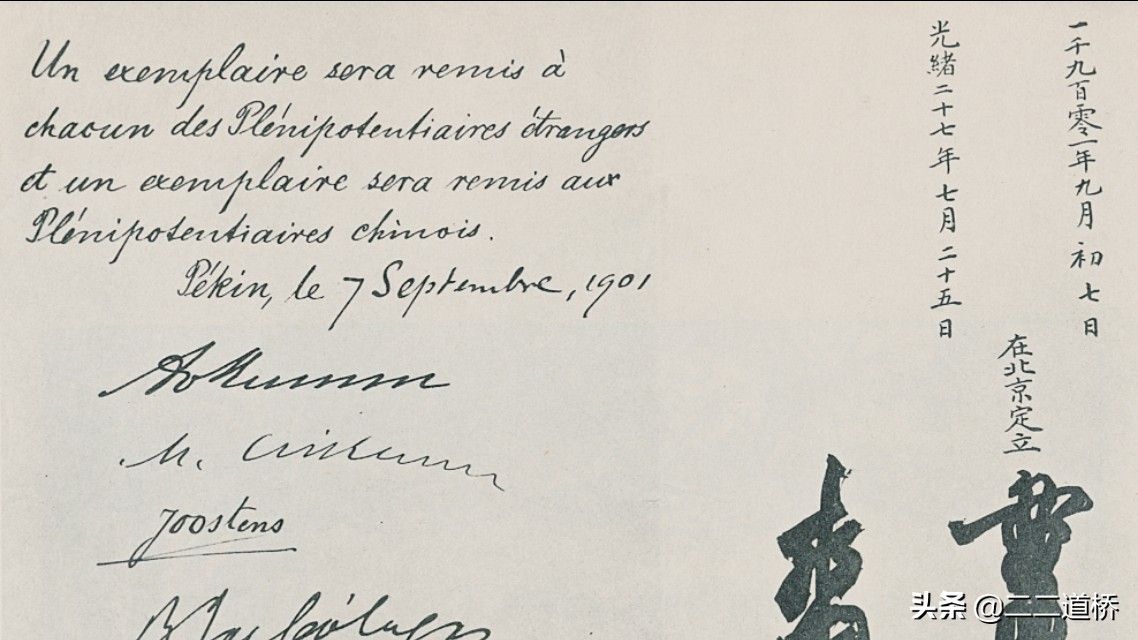 Un exemplaire sera remis à
chacun des Plénipotentiaires étrangers
et un exemplaire sera remis aux
Plénipotentiaires chinois.
Pékin, le 7 Septembre, 1901
Joostens
一千九百零一年九月初七日
光緒二十七年七月二十五日
在北京定立
头条 @二二道桥